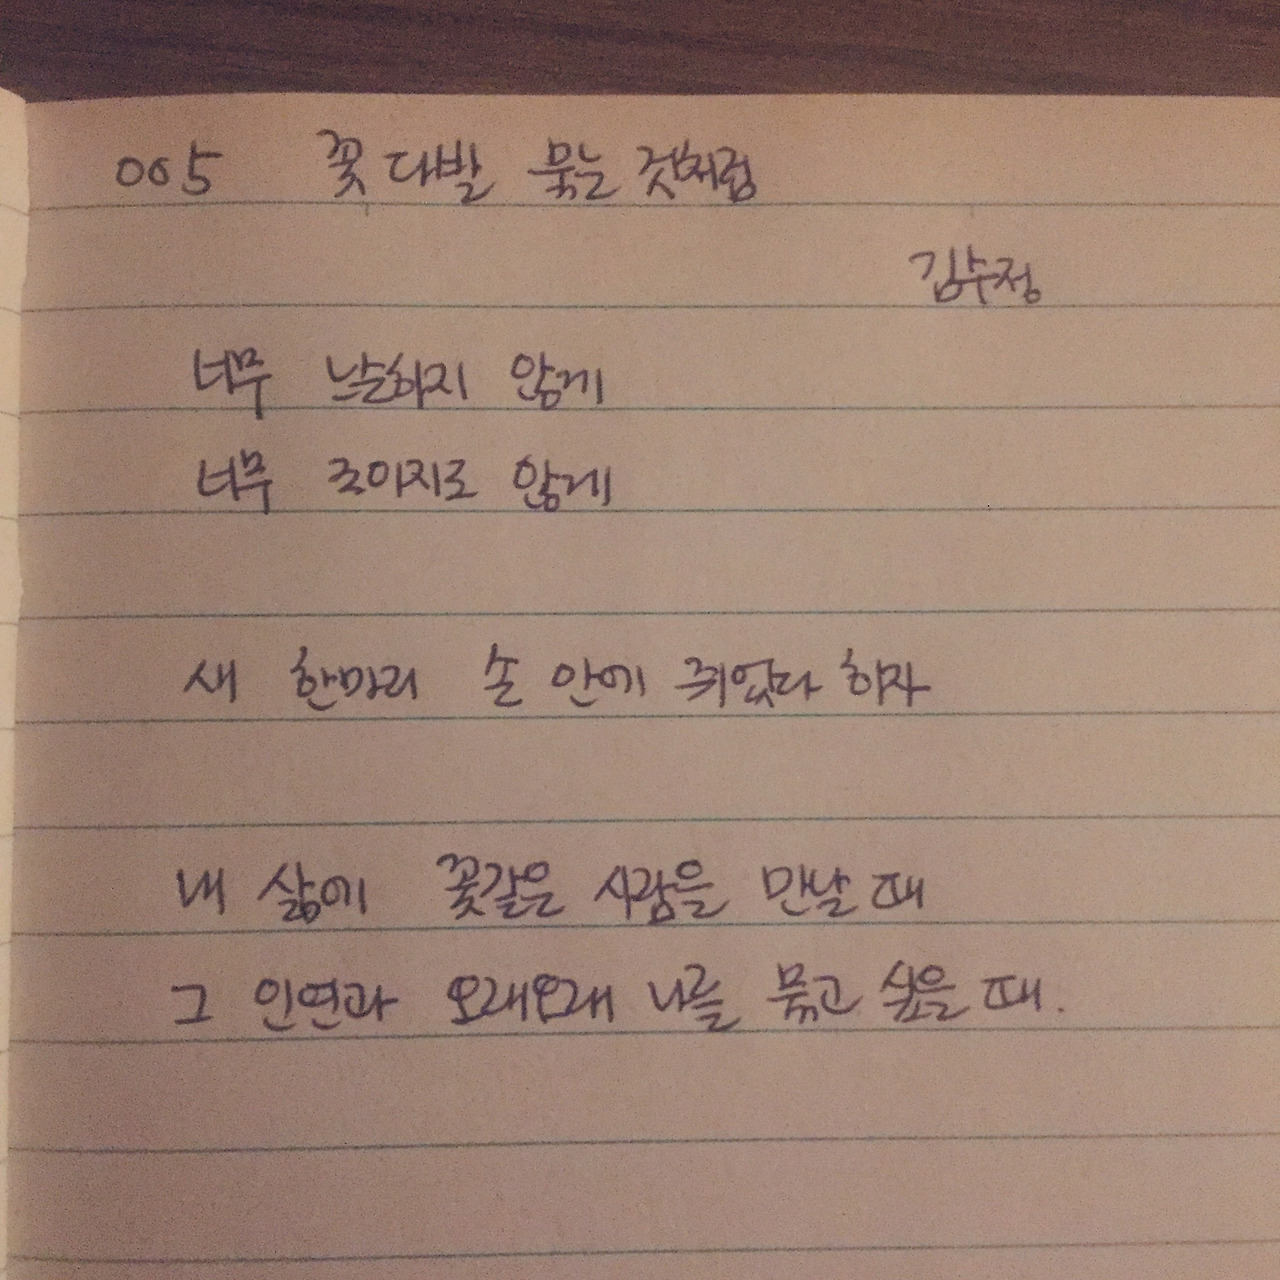 005 꽃다발 묶는 것처럼
김수정
너무 느슨하지 않게
너무 조이지도 않게
새 한마리 손 안에 쥐었다 하자
내 삶에 꽃같은 사람을 만날 때
그 인연과 오래오래 나를 묶고 싶을 때.